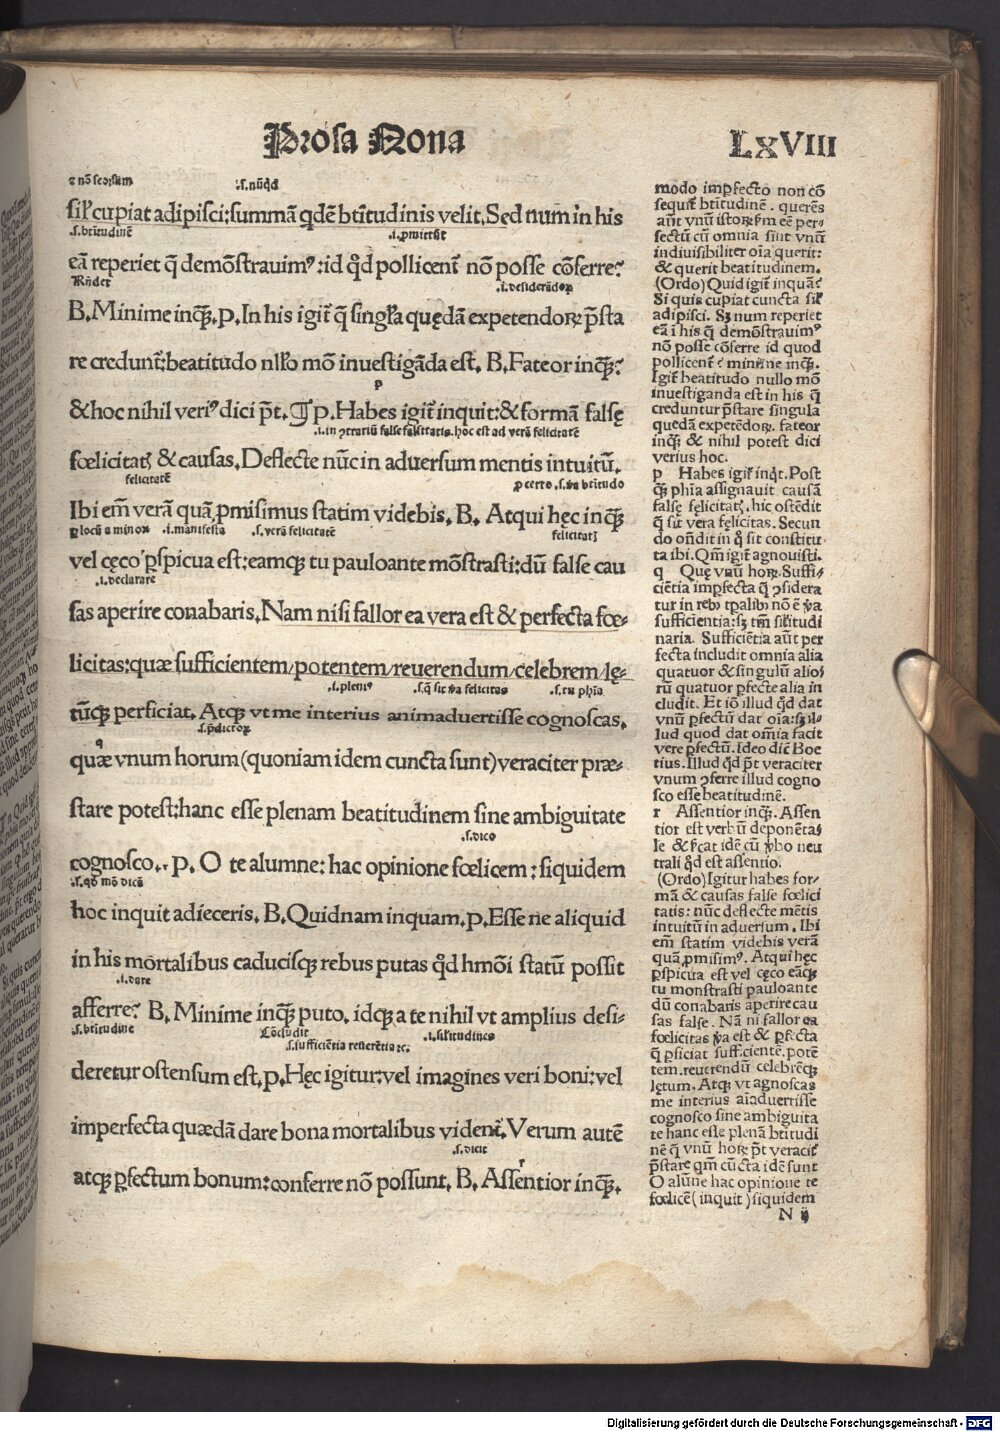 Prosa Nona
LxVIII
⁊ nõ seorsum .s. nũqd
siĺ cupiat adipisci: summã qdẽ btitudinis velit. Sed num in his
.s. btitudinẽ .i. ꝓmittũt
eã reperiet q̃ demõstrauimꝰ: id qd pollicent̃ nõ posse cõferre?
Rñdet .i. desiderãdoꝝ
B. Minime inqꝫ. p. In his igit̃ q̃ singĺa quędã expetendoꝝ p̃sta
re credunt̃: beatitudo nĺlo mõ inuestigãda est. B. Fateor inqꝫ?
p
& hoc nihil veriꝰ dici põt. ¶ p. Habes igit̃ inquit: & formã falsę
.i. in ꝯtrariũ false falsitatis. hoc est ad verã felicitatẽ
fœlicitatꝭ & causas. Deflecte nũc in aduersum mentis intuitũ.
felicitatẽ ꝓ certo .s. ꝟa btitudo
Ibi em̃ verã quã ꝓmisimus statim videbis. B. Atqui hęc inqꝫ
ꝑ locũ a minori .i. manifesta .s. verã felicitatẽ felicitatꝭ
vel cęco ꝑspicua est: eamqꝫ tu pauloante mõstrasti: dũ false cau
.i. declarare
sas aperire conabaris. Nam nisi fallor ea vera est & perfecta fœ-
licitas: quæ sufficientem/potentem/reuerendum/celebrem/lę-
.i. pleniꝰ .s. q̃ sit ꝟa felicitas .s. tu phia
tũqꝫ perficiat. Atqꝫ vt me interius animaduertisse cognoscas.
.s. p̃dictoꝝ
q
quæ vnum horum (quoniam idem cuncta sunt) veraciter præ-
stare potest: hanc esse plenam beatitudinem sine ambiguitate
.s. dico
cognosco. p. O te alumne: hac opinione fœlicem: siquidem
.s. qd mõ dicã
hoc inquit adieceris. B. Quidnam inquam. p. Esse ne aliquid
in his mortalibus caducisqꝫ rebus putas qd hmõi statũ possit
.i. dare
afferre? B. Minime inqꝫ puto. idqꝫ a te nihil vt amplius desi-
.s. btitudine Cõcludit .i. similitudines
.s. sufficiẽtia reuerẽtia ⁊c.
deretur ostensum est. p. Hęc igitur: vel imagines veri boni: vel
imperfecta quædã dare bona mortalibus vident̃. Verum autẽ
.s. dicit
r
atqꝫ ꝑfectum bonum: conferre nõ possunt. B. Assentior inqꝫ.
modo imꝑfecto non cõ
sequit̃ btitudinẽ. querẽs
aũt vnũ istoꝝ ẽm eẽ per-
fectũ cũ omnia sint vnũ
indiuisibiliter oĩa querit:
& querit beatitudinem.
(Ordo) Quid igit̃ inquã?
Si quis cupiat cuncta siĺ
adipisci. Sꝫ num reperiet
eã ĩ his q̃ demõstrauimꝰ
nõ posse cõferre id quod
pollicent̃? minime inqꝫ.
Igit̃ beatitudo nullo mõ
inuestiganda est in his q̃
creduntur p̃stare singula
quedã expetẽdoꝝ. fateor
inqꝫ & nihil potest dici
verius hoc.
p Habes igit̃ inq̃t. Post
qꝫ phia assignauit causã
falsę fęlicitatꝭ. hic ostẽdit
q̃ sit vera fęlicitas. Secun
do oñdit in q̃ sit constitu-
ta ibi. Qm̃ igit̃ agnouisti.
q Quę vnũ hoꝝ. Suffi-
ciẽtia imꝑfecta q̃ ꝯsidera
tur in rebꝰ tꝑalibꝰ nõ ẽ ꝟa
sufficientia: sꝫ tm̃ siĺitudi
naria. Sufficiẽtia aũt per
fecta includit omnia alia
quatuor & singulũ alioꝝ
rũ quatuor ꝑfecte alia in
cludit. Et iõ illud qd dat
vnũ ꝑfectũ dat oĩa: sꝫ il-
lud quod dat om̃ia facit
vere ꝑfectũ. Ideo dic̃ Boe
tius. Illud qd põt veraciter
vnum ꝯferre illud cogno
sco esse beatitudinẽ.
r Assentior inqꝫ. Assen
tior est verbũ deponẽta-
le & significat idẽ cũ ꝟbo neu
trali qd est assentio.
(Ordo) Igitur habes for-
mã & causas false fœlici
tatis: nũc deflecte mẽtis
intuitũ in aduersum. Ibi
em̃ statim videbis verã
quã ꝓmisimꝰ. Atqui hęc
ꝑspicua est vel cęco eãqꝫ
tu monstrasti pauloante
dũ conabaris aperire cau
sas false. Nã ni fallor ea
fœlicitas ꝟa est & ꝑfecta
q̃ ꝑficiat sufficiẽtẽ. potẽ
tem. reuerendũ celebrẽqꝫ
lętum. Atqꝫ vt agnoscas
me interius aĩaduertisse
cognosco sine ambiguita
te hanc esse plenã btitudi
nẽ q̃ vnũ hoꝝ põt veracit̃
p̃stare qm̃ cũcta idẽ sunt
O alũne hac opinione te
fœlicẽ (inquit) siquidem
N ij
Digitalisierung gefördert durch die Deutsche Forschungsgemeinschaft - DFG